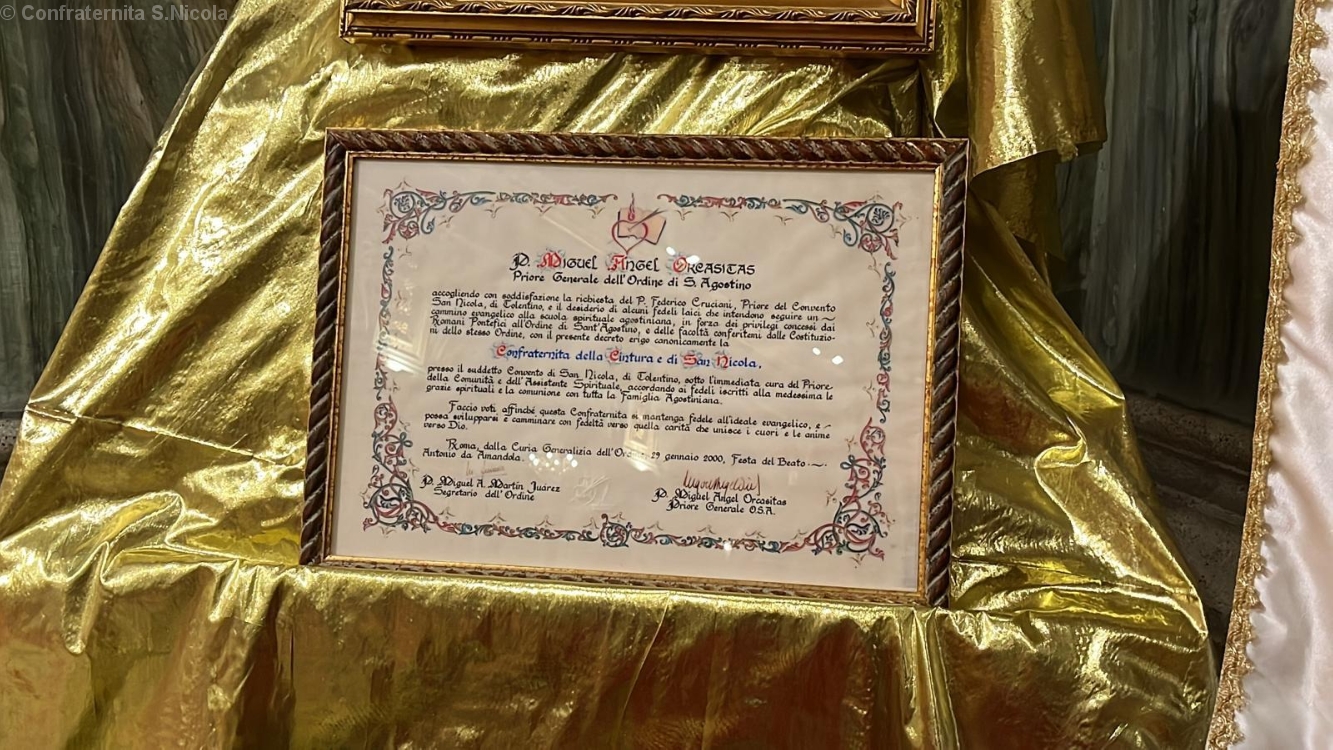 © Confraternita S.Nicola
P. Miguel Angel Orcasitas
Priore Generale dell'Ordine di S. Agostino
accogliendo con soddisfazione la richiesta del P. Federico Cruciani, Priore del Convento
San Nicola, di Tolentino, e il desiderio di alcuni fedeli laici che intendono seguire un
cammino evangelico alla scuola spirituale agostiniana, in forza dei privilegi concessi dai
Romani Pontefici all'Ordine di Sant'Agostino, e delle facoltà conferitemi dalle Costituzio-
ni dello stesso Ordine, con il presente decreto erigo canonicamente la
Confraternita della Cintura e di San Nicola,
presso il suddetto Convento di San Nicola, di Tolentino, sotto l'immediata cura del Priore
della Comunità e dell'Assistente Spirituale, accordando ai fedeli iscritti alla medessima le
grazie spirituali e la comunione con tutta la Famiglia Agostiniana.
Faccio voti affinché questa Confraternita si mantenga fedele all'ideale evangelico, e
possa svilupparsi e camminare con fedeltà verso quella carità che unisce i cuori e le anime
verso Dio.
Roma, dalla Curia Generalizia dell'Ordine, 29 gennaio 2000, Festa del Beato
Antonio da Amandola.
P. Miguel A. Martín Juárez
Segretario dell'Ordine
P. Miguel Angel Orcasitas
Priore Generale O.S.A.